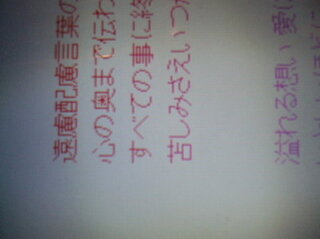 遠慮配慮言葉の
心の奥まで伝わ
すべての事に終
苦しみさえいつ
溢れる想い 愛